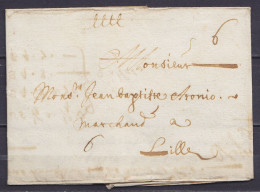 llll
6
A Monsieur
Mons.r Jean baptiste chonio.
marchand a
6
Lille